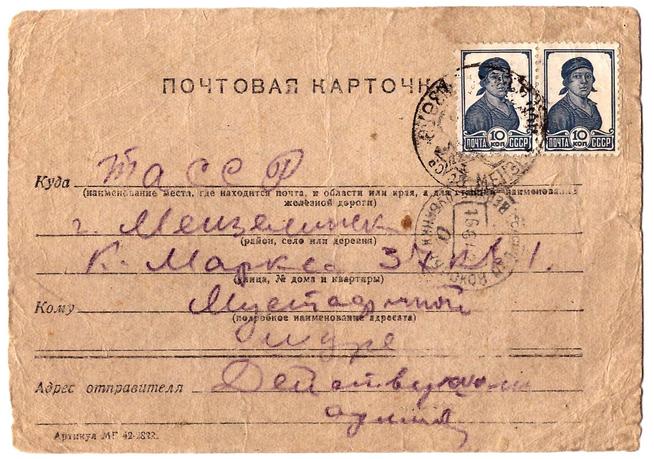 ПОЧТОВАЯ КАРТОЧК
10 КОП
ПОЧТА СССР
10 КОП
ПОЧТА СССР
Куда ТАССР
(наименование места, где находится почта, и области или края, а для станций наименование
железной дороги)
г. Мензелинск
(район, село или деревня)
К. Маркса 37 кв 1.
(улица, № дома и квартиры)
Кому Мустафиной
(подробное наименование адресата)
Адрес отправителя Действующая
армия
Артикул МГ 42-2822.